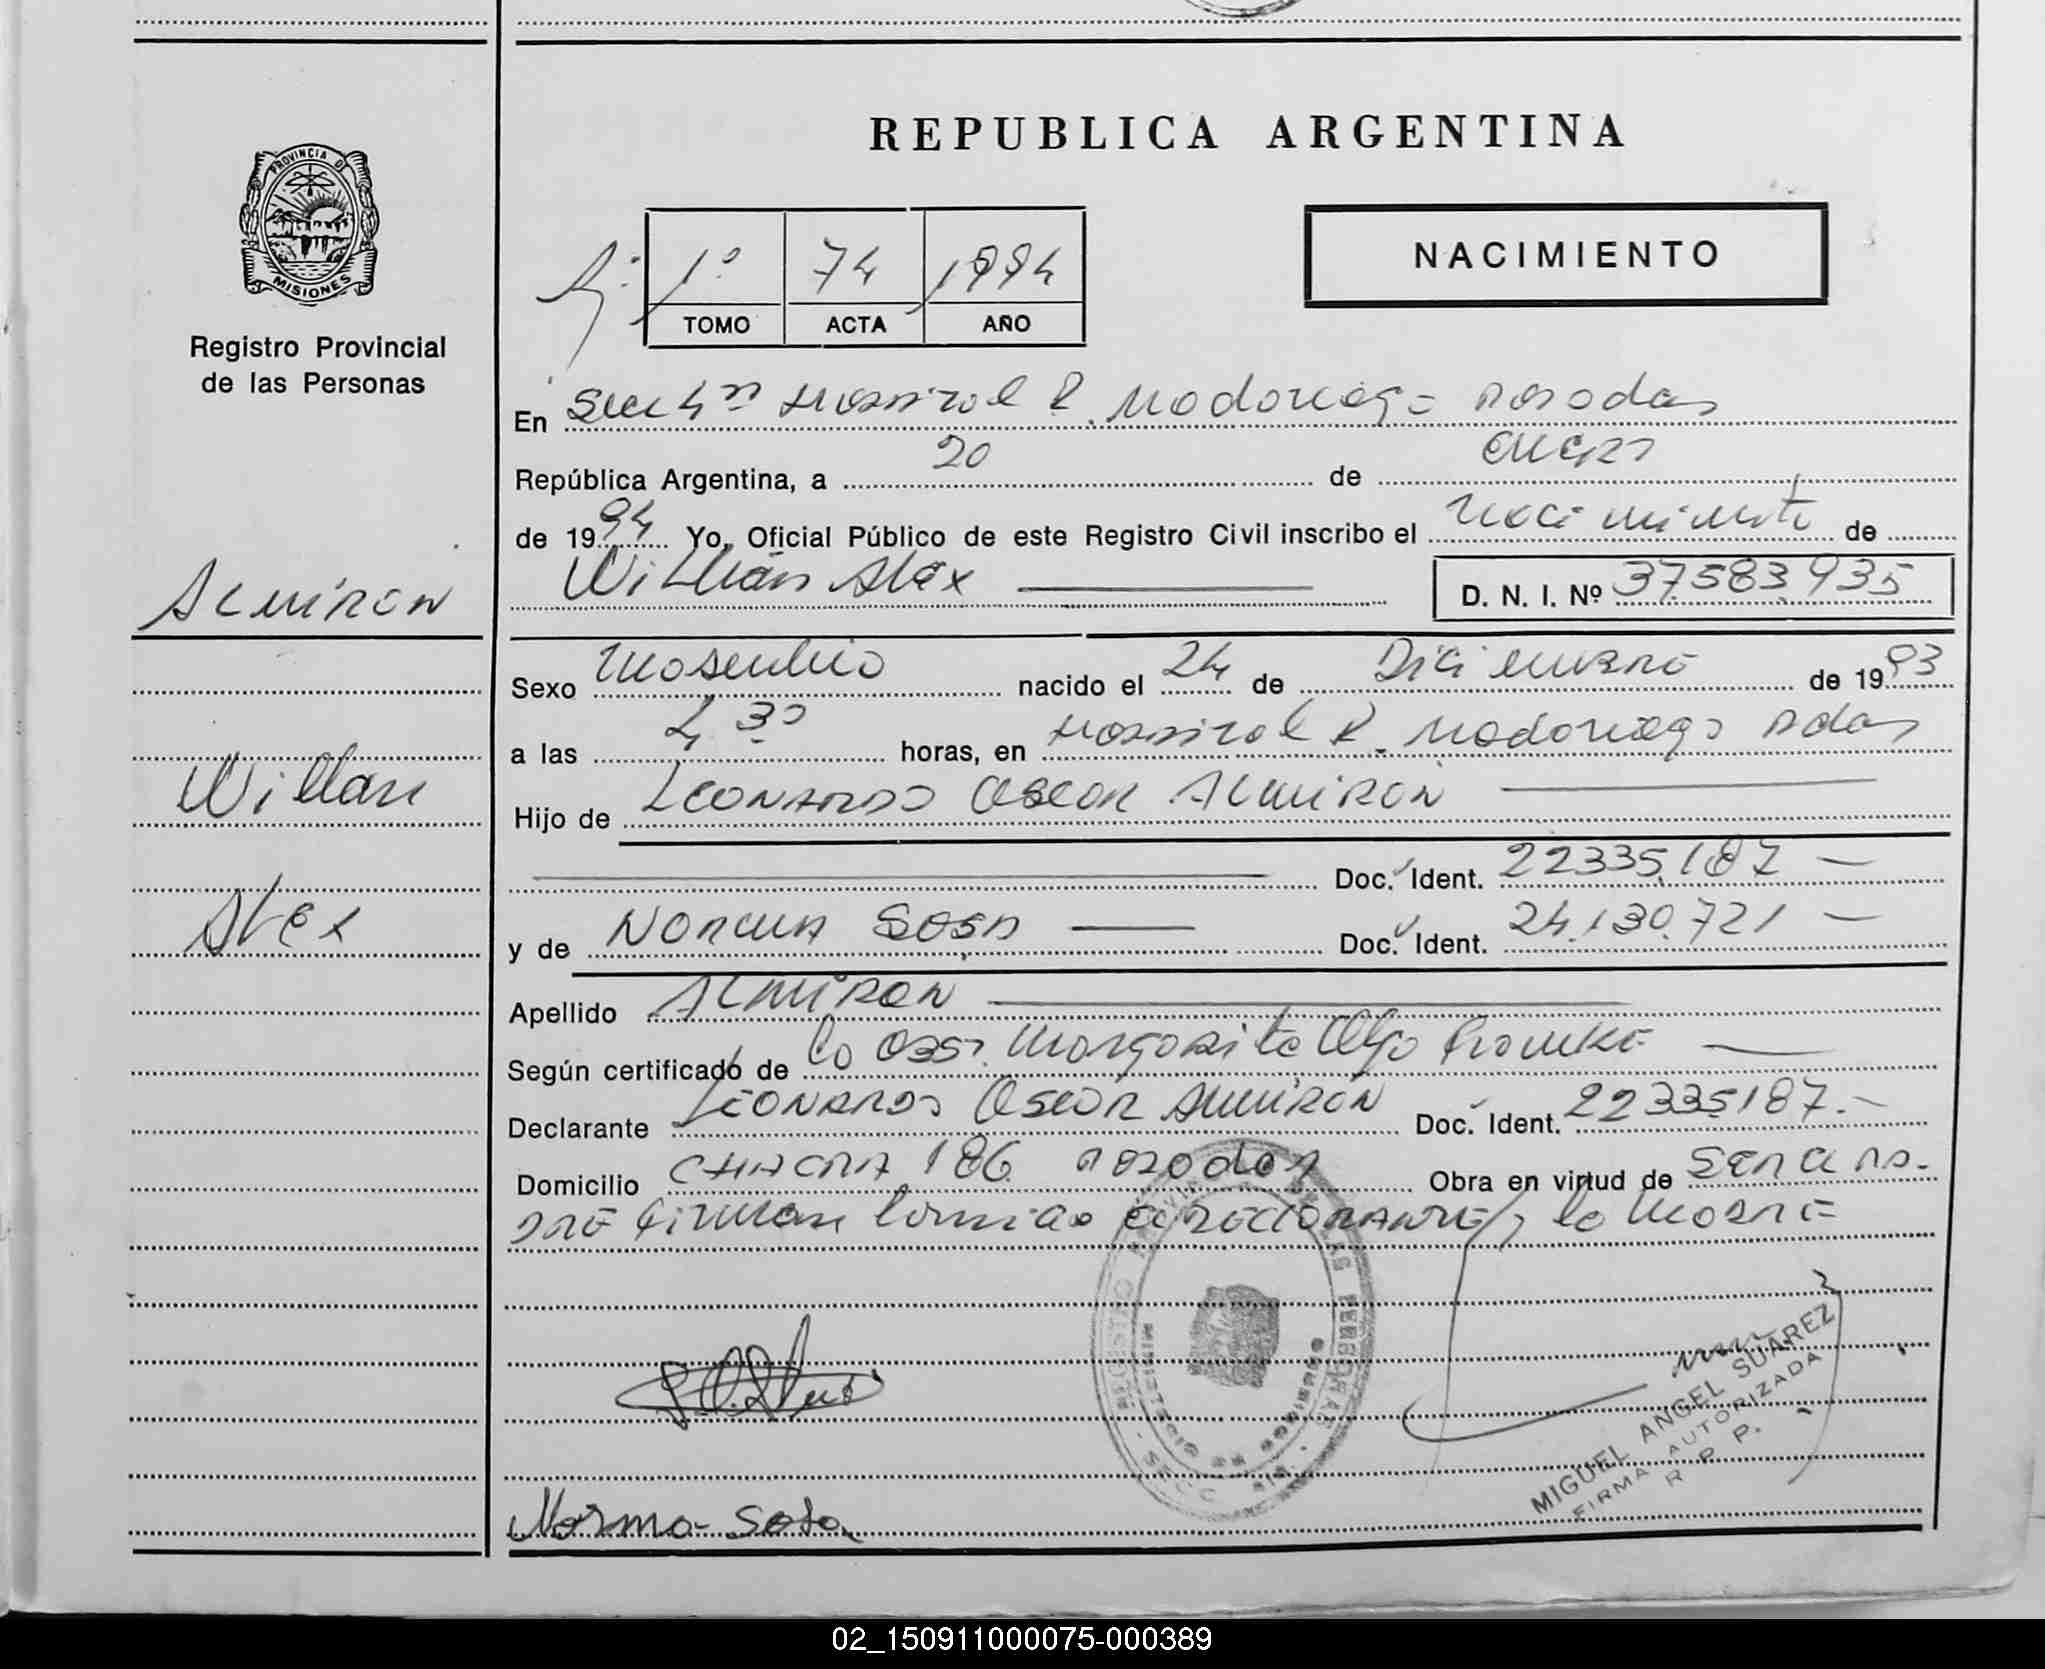 REPUBLICA ARGENTINA
PROVINCIA DE
MISIONES
Registro Provincial
de las Personas
1º 74 1994
TOMO ACTA AÑO
NACIMIENTO
En Secc 4ª Hospital R. Madariaga Posadas
República Argentina, a 20 de enero
de 1994 Yo, Oficial Público de este Registro Civil inscribo el Nacimiento de
Willian Alex D. N. I. Nº 37.583.935
ALMIRON
Sexo Masculino nacido el 24 de Diciembre de 1993
a las 4,30 horas, en Hospital R. Madariaga Pdas
Willian
Hijo de LEONARDO OSCAR ALMIRON
Doc. Ident. 22.335.187
Alex
y de NORMA SOSA Doc. Ident. 24.130.721
Apellido ALMIRON
Según certificado de la Obst. Margarita Olga
Declarante LEONARDO OSCAR ALMIRON Doc. Ident. 22335187.-
Domicilio CHACRA 186 Posadas Obra en virtud de SER EL PA-
DRE Firman conmigo el DECLARANTE y la MADRE
Norma Sosa
MIGUEL ANGEL SUAREZ
FIRMA AUTORIZADA
R. P. P.
02_150911000075-000389